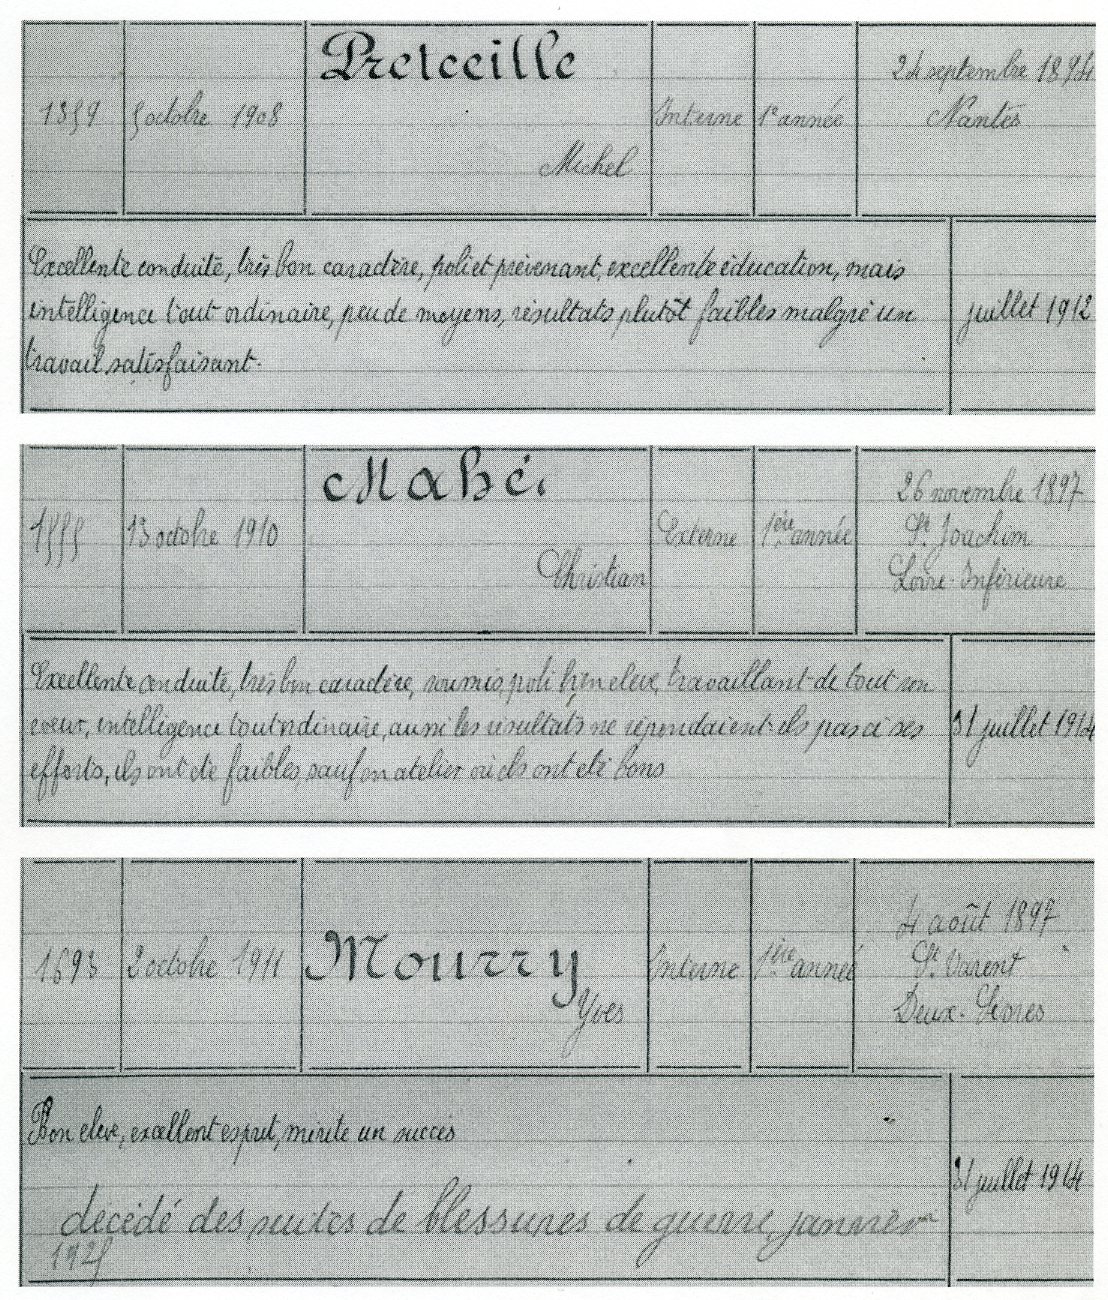 Preteille
1359 5 octobre 1908 Interne 1e année 24 septembre 1894
Nantes
Michel
Excellente conduite, très bon caractère, poli et prévenant, excellente éducation, mais
intelligence tout ordinaire, peu de moyens, résultats plutôt faibles malgré un
travail satisfaisant.
juillet 1912
Mahé.
1555 13 octobre 1910 Externe 1ère année 26 novembre 1897
St. Joachim
Loire-Inférieure
Christian
Excellente conduite, très bon caractère, soumis, poli bien élevé, travaillant de tout son
coeur, intelligence tout ordinaire, aussi les résultats ne répondaient-ils pas à ses
efforts, ils ont été faibles, sauf en atelier où ils ont été bons
31 juillet 1914
Mourry
1693 2 octobre 1911 Interne 1ère année 4 août 1897
St. Varent
Deux-Sèvres
Yves
Bon élève, excellent esprit, mérite un succès
31 juillet 1914
décédé des suites de blessures de guerre, janvier
1925